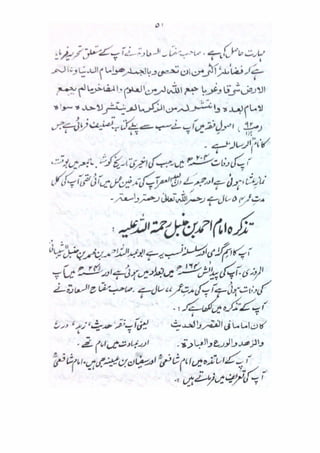 ۵۱
مہارت حاصل کی ہے، صاحب مفتاح السعادۃ نے آپ کے متعلق تحریر فرمایا
ہے کہ فضائلہ اکثر من ان تحصی وبالجملہ ھو امام الدنیا وعالم
الارض شرقا وغربا جمع اللہ لہ من العلوم والمفاخر ما لم یجمع
لامام بعدہ وانتشر لہ من الذکر ما لم ینتشر لاحد سواہ
اصول فقہ میں آپ نے سب سے پہلے کتاب تصنیف فرمائی ہے جس
کا نام الرسالہ ہے۔
آپ کی وفات ۲۰۴ھ میں رجب کی اخیری تاریخ کو شب جمعہ میں بوقت
نماز عشاء ہوئی ہے اور جمعہ کے دن بعد العصر آپ کی تدفین عمل میں آئی تھی آپ کی کل
مدت عمر ۵۴ سال ہے رحمہ اللہ تعالیٰ رحمۃ واسعۃ۔
تذکرہ امام احمد بن حنبل رحمۃ اللہ علیہ :
آپ کا اسم گرامی اور سلسلہ نسب یہ ہے ابو عبداللہ احمد بن محمد بن حنبل الشیبانی
المروزی۔ آپ کی پیدائش ۱۶۴ھ میں بغداد میں ہوئی ہے اور میں آپ
کی وفات ہوئی ہے آپ کی مدت عمر ۷۷ سال ہے۔ صاحب مفتاح السعادۃ نے
آپ کے تذکرہ میں لکھا ہے کہ :۔
کان اماما فی الفقہ والحدیث یعنی آپ فقہ، حدیث، زہد، ورع
والزھد والورع والعبادۃ۔ اور عبادت میں امام تھے۔
آپ کے اساتذہ میں امام شافعیؒ اور سفیان بن عیینہ بھی ہیں، امام شافعیؒ
آپ کی تعریف میں فرماتے ہیں :